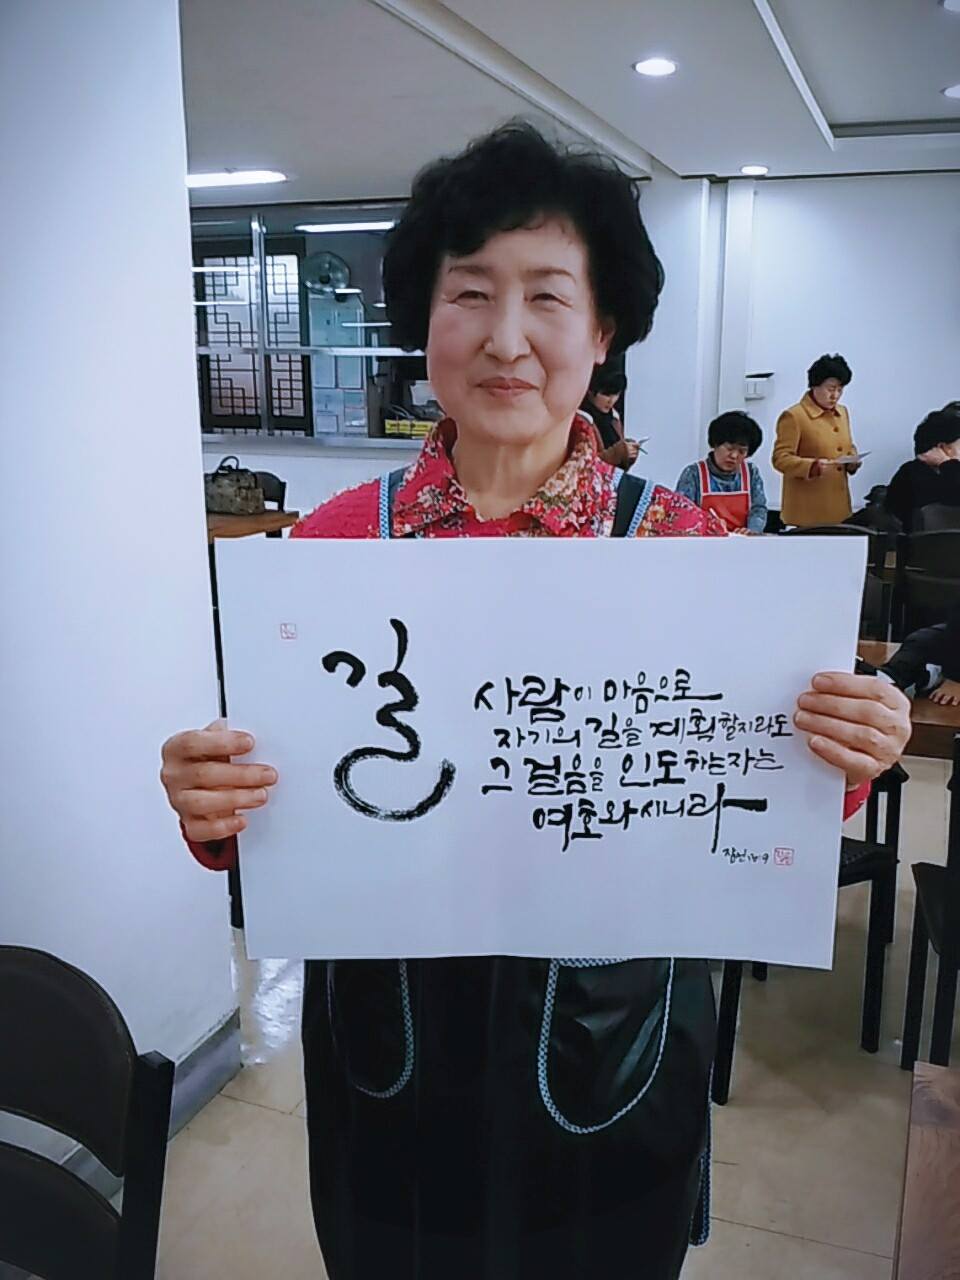 길
사람이 마음으로
자기의 길을 계획할지라도
그 걸음을 인도하는자는
여호와시니라
잠언 16:9